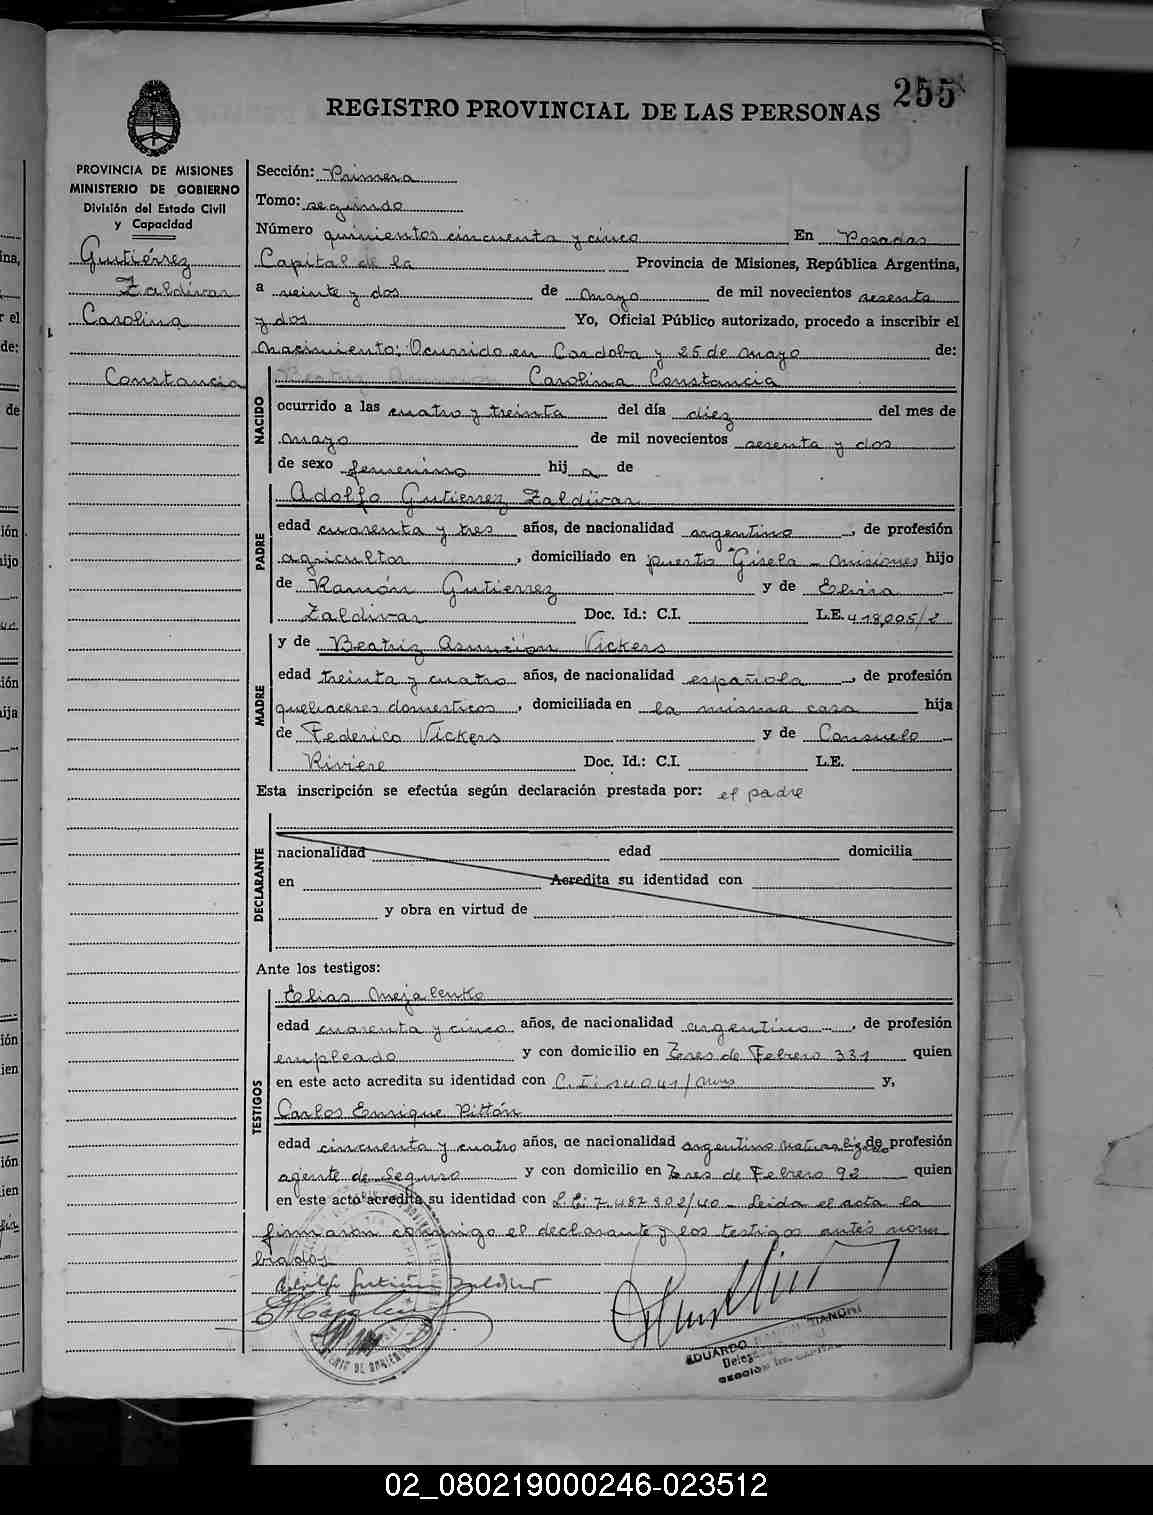 255
REGISTRO PROVINCIAL DE LAS PERSONAS
PROVINCIA DE MISIONES
MINISTERIO DE GOBIERNO
División del Estado Civil
y Capacidad
Gutiérrez
Zaldívar
Carolina
Constancia
Sección: Primera
Tomo: segundo
Número quinientos cincuenta y cinco En Posadas
Capital de la Provincia de Misiones, República Argentina,
a veinte y dos de mayo de mil novecientos sesenta
y dos Yo, Oficial Público autorizado, procedo a inscribir el
Nacimiento: Ocurrido en Cordoba y 25 de mayo de:
NACIDO
Carolina Constancia
ocurrido a las cuatro y treinta del día diez del mes de
mayo de mil novecientos sesenta y dos
de sexo femenino hij a de
PADRE
Adolfo Gutierrez Zaldívar
edad cuarenta y tres años, de nacionalidad argentino, de profesión
agricultor, domiciliado en puerto Gisela - misiones hijo
de Ramón Gutierrez y de Elvira
Zaldivar Doc. Id.: C.I. L.E. 418,005/2
MADRE
y de Beatriz Asunción Vickers
edad treinta y cuatro años, de nacionalidad española, de profesión
quehaceres domesticos, domiciliada en la misma casa hija
de Federico Vickers y de Consuelo
Riviere Doc. Id.: C.I. L.E.
Esta inscripción se efectúa según declaración prestada por: el padre
DECLARANTE
nacionalidad edad domicilia
en Acredita su identidad con
y obra en virtud de
Ante los testigos:
TESTIGOS
Elias Mejalenko
edad cuarenta y cinco años, de nacionalidad argentino, de profesión
empleado y con domicilio en Tres de Febrero 331 quien
en este acto acredita su identidad con y,
Carlos Enrique Pittón
edad cincuenta y cuatro años, de nacionalidad argentino naturalizado de profesión
agente de Seguro y con domicilio en Tres de Febrero 92 quien
en este acto acredita su identidad con L.E: 7.487.902/40 - Leida el acta la
firmaron conmigo el declarante y los testigos antes nom
brados
EDUARDO
02_080219000246-023512